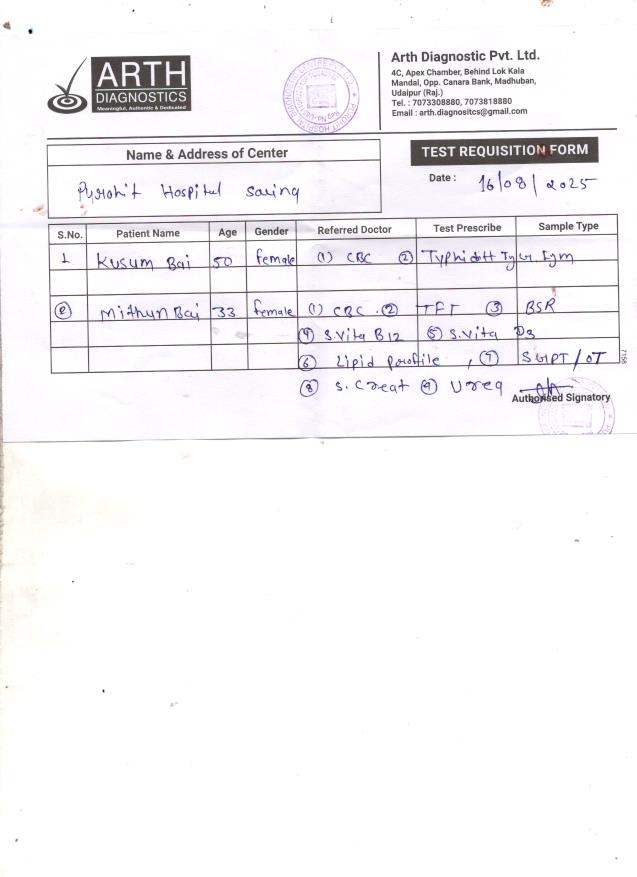 ARTH
DIAGNOSTICS
Meaningful, Authentic & Dedicated
Arth Diagnostic Pvt. Ltd.
4C, Apex Chamber, Behind Lok Kala
Mandal, Opp. Canara Bank, Madhuban,
Udaipur (Raj.)
Tel. : 7073308880, 7073818880
Email : arth.diagnositcs@gmail.com
Name & Address of Center
TEST REQUISITION FORM
Purohit Hospital
Date : 16/08/2025
S.No. Patient Name Age Gender Referred Doctor Test Prescribe Sample Type
1 Kusum Bai 50 female (1) CBC (2) Typhidott IgG IgM
(2) Mithun Bai 33 female (1) CBC . (2) TFT (3) BSR
(4) S.Vita B12 (5) S.Vita D3
(6) Lipid Profile , (7) SGPT/OT
(8) S. Creat (9) Urea
Authorised Signatory
7158